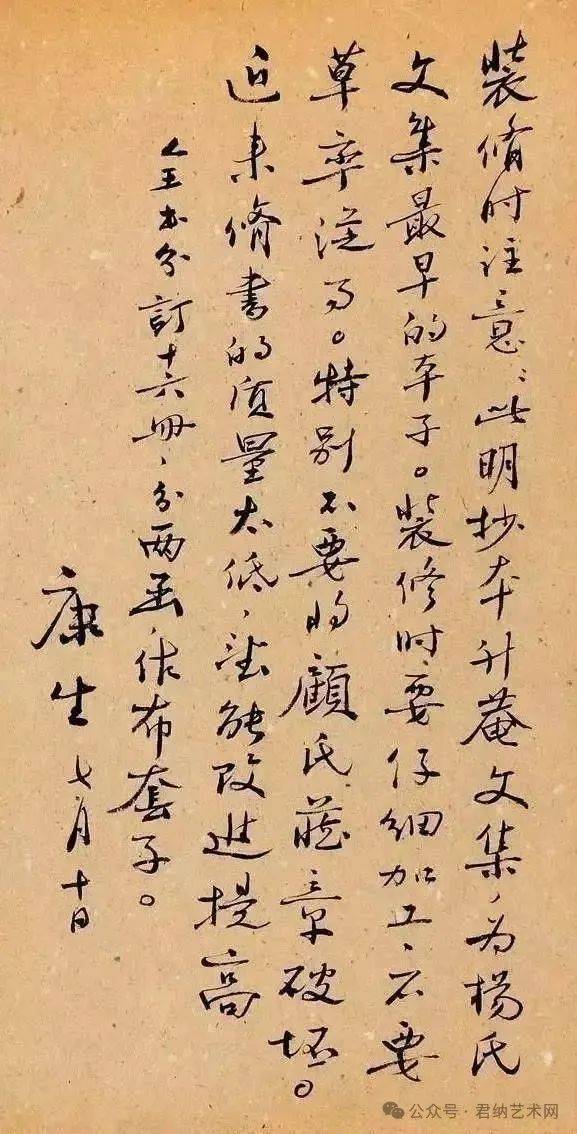 装脩时注意：此明抄本升菴文集，为杨氏
文集最早的本子。装修时要仔细加工，不要
草率从事。特别不要将顾氏藏章破坏。
近来脩书的质量太低，望能改进提高
全书分訂十六册，分两函，作布套子。
康生 七月十日
公众号·君纳艺术网